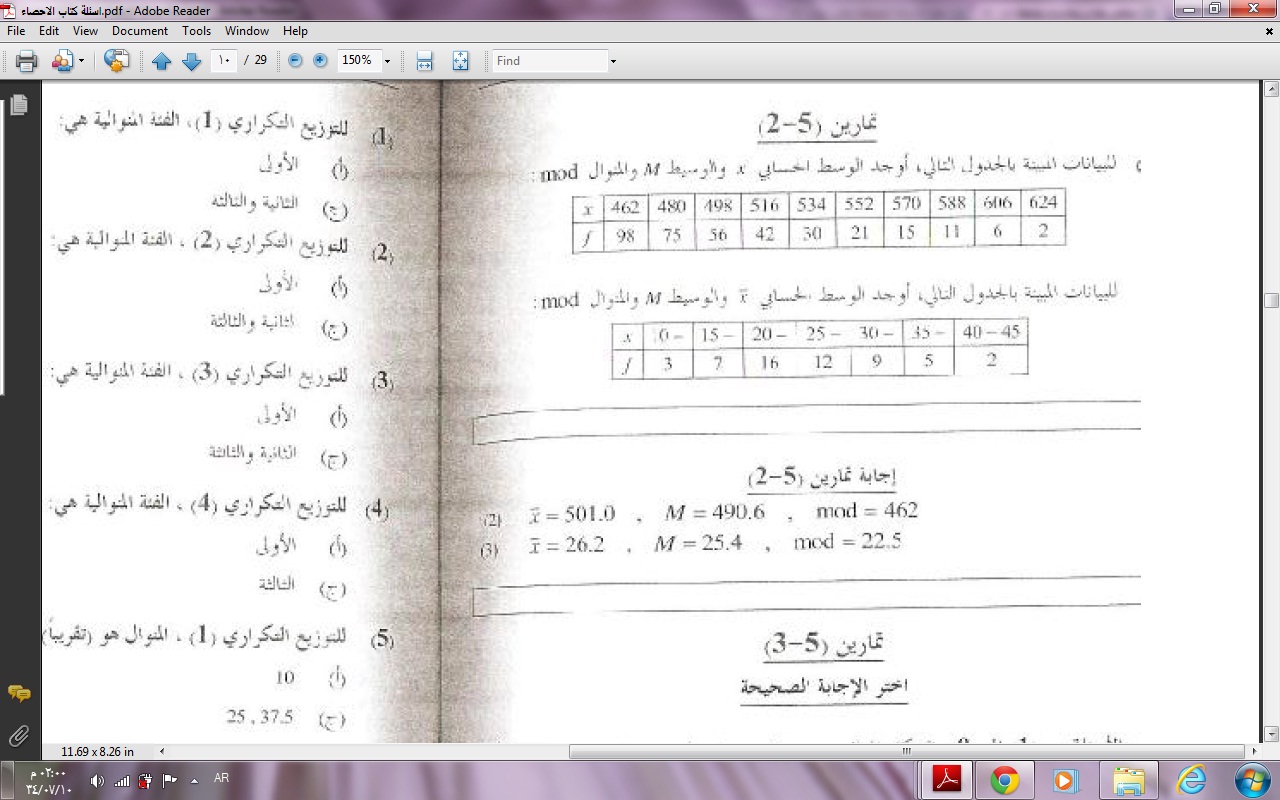 اسئلة كتاب الاحصاء.pdf - Adobe Reader
File Edit View Document Tools Window Help
١٠ / 29 150% Find
تمارين (5-2)
للبيانات المبينة بالجدول التالي، أوجد الوسط الحسابي x والوسيط M والمنوال mod :
x 462 480 498 516 534 552 570 588 606 624
f 98 75 56 42 30 21 15 11 6 2
للبيانات المبينة بالجدول التالي، أوجد الوسط الحسابي x̄ والوسيط M والمنوال mod :
x 0 – 15 – 20 – 25 – 30 – 35 – 40 – 45
f 3 7 16 12 9 5 2
إجابة تمارين (5-2)
(2) x̄ = 501.0 , M = 490.6 , mod = 462
(3) x̄ = 26.2 , M = 25.4 , mod = 22.5
تمارين (5-3)
اختر الإجابة الصحيحة
(1) للتوزيع التكراري (1)، الفئة المنوالية هي:
(أ) الأولى
(ج) الثانية والثالثة
(2) للتوزيع التكراري (2) ، الفئة المنوالية هي:
(أ) الأولى
(ج) الثانية والثالثة
(3) للتوزيع التكراري (3) ، الفئة المنوالية هي:
(أ) الأولى
(ج) الثانية والثالثة
(4) للتوزيع التكراري (4) ، الفئة المنوالية هي:
(أ) الأولى
(ج) الثالثة
(5) للتوزيع التكراري (1) ، المنوال هو (تقريباً)
(أ) 10
(ج) 25 , 37.5
11.69 x 8.26 in
AR
٠٢:٠٠ م
٣٤/٠٧/١٠